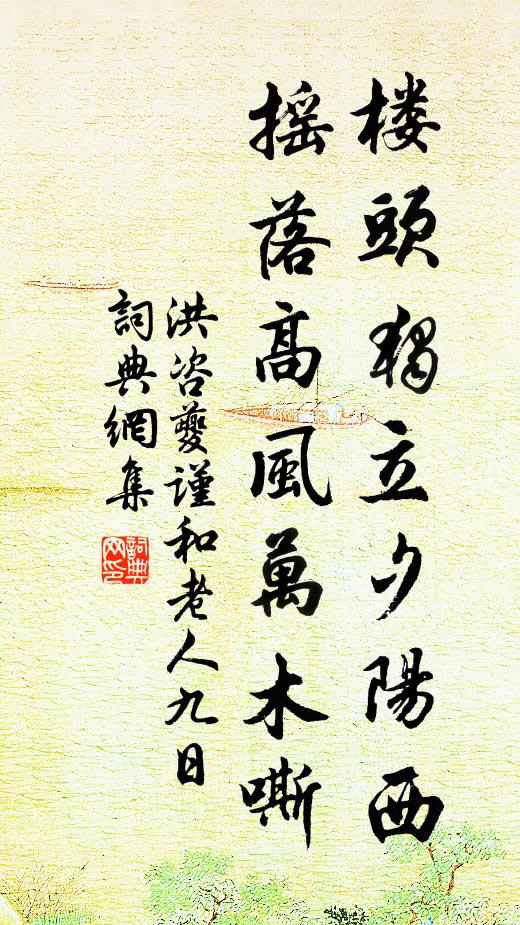 楼頭獨立夕陽西
摇落高風萬木嘶
洪咨夔謹和老人九日
詞典網集
詞典网印